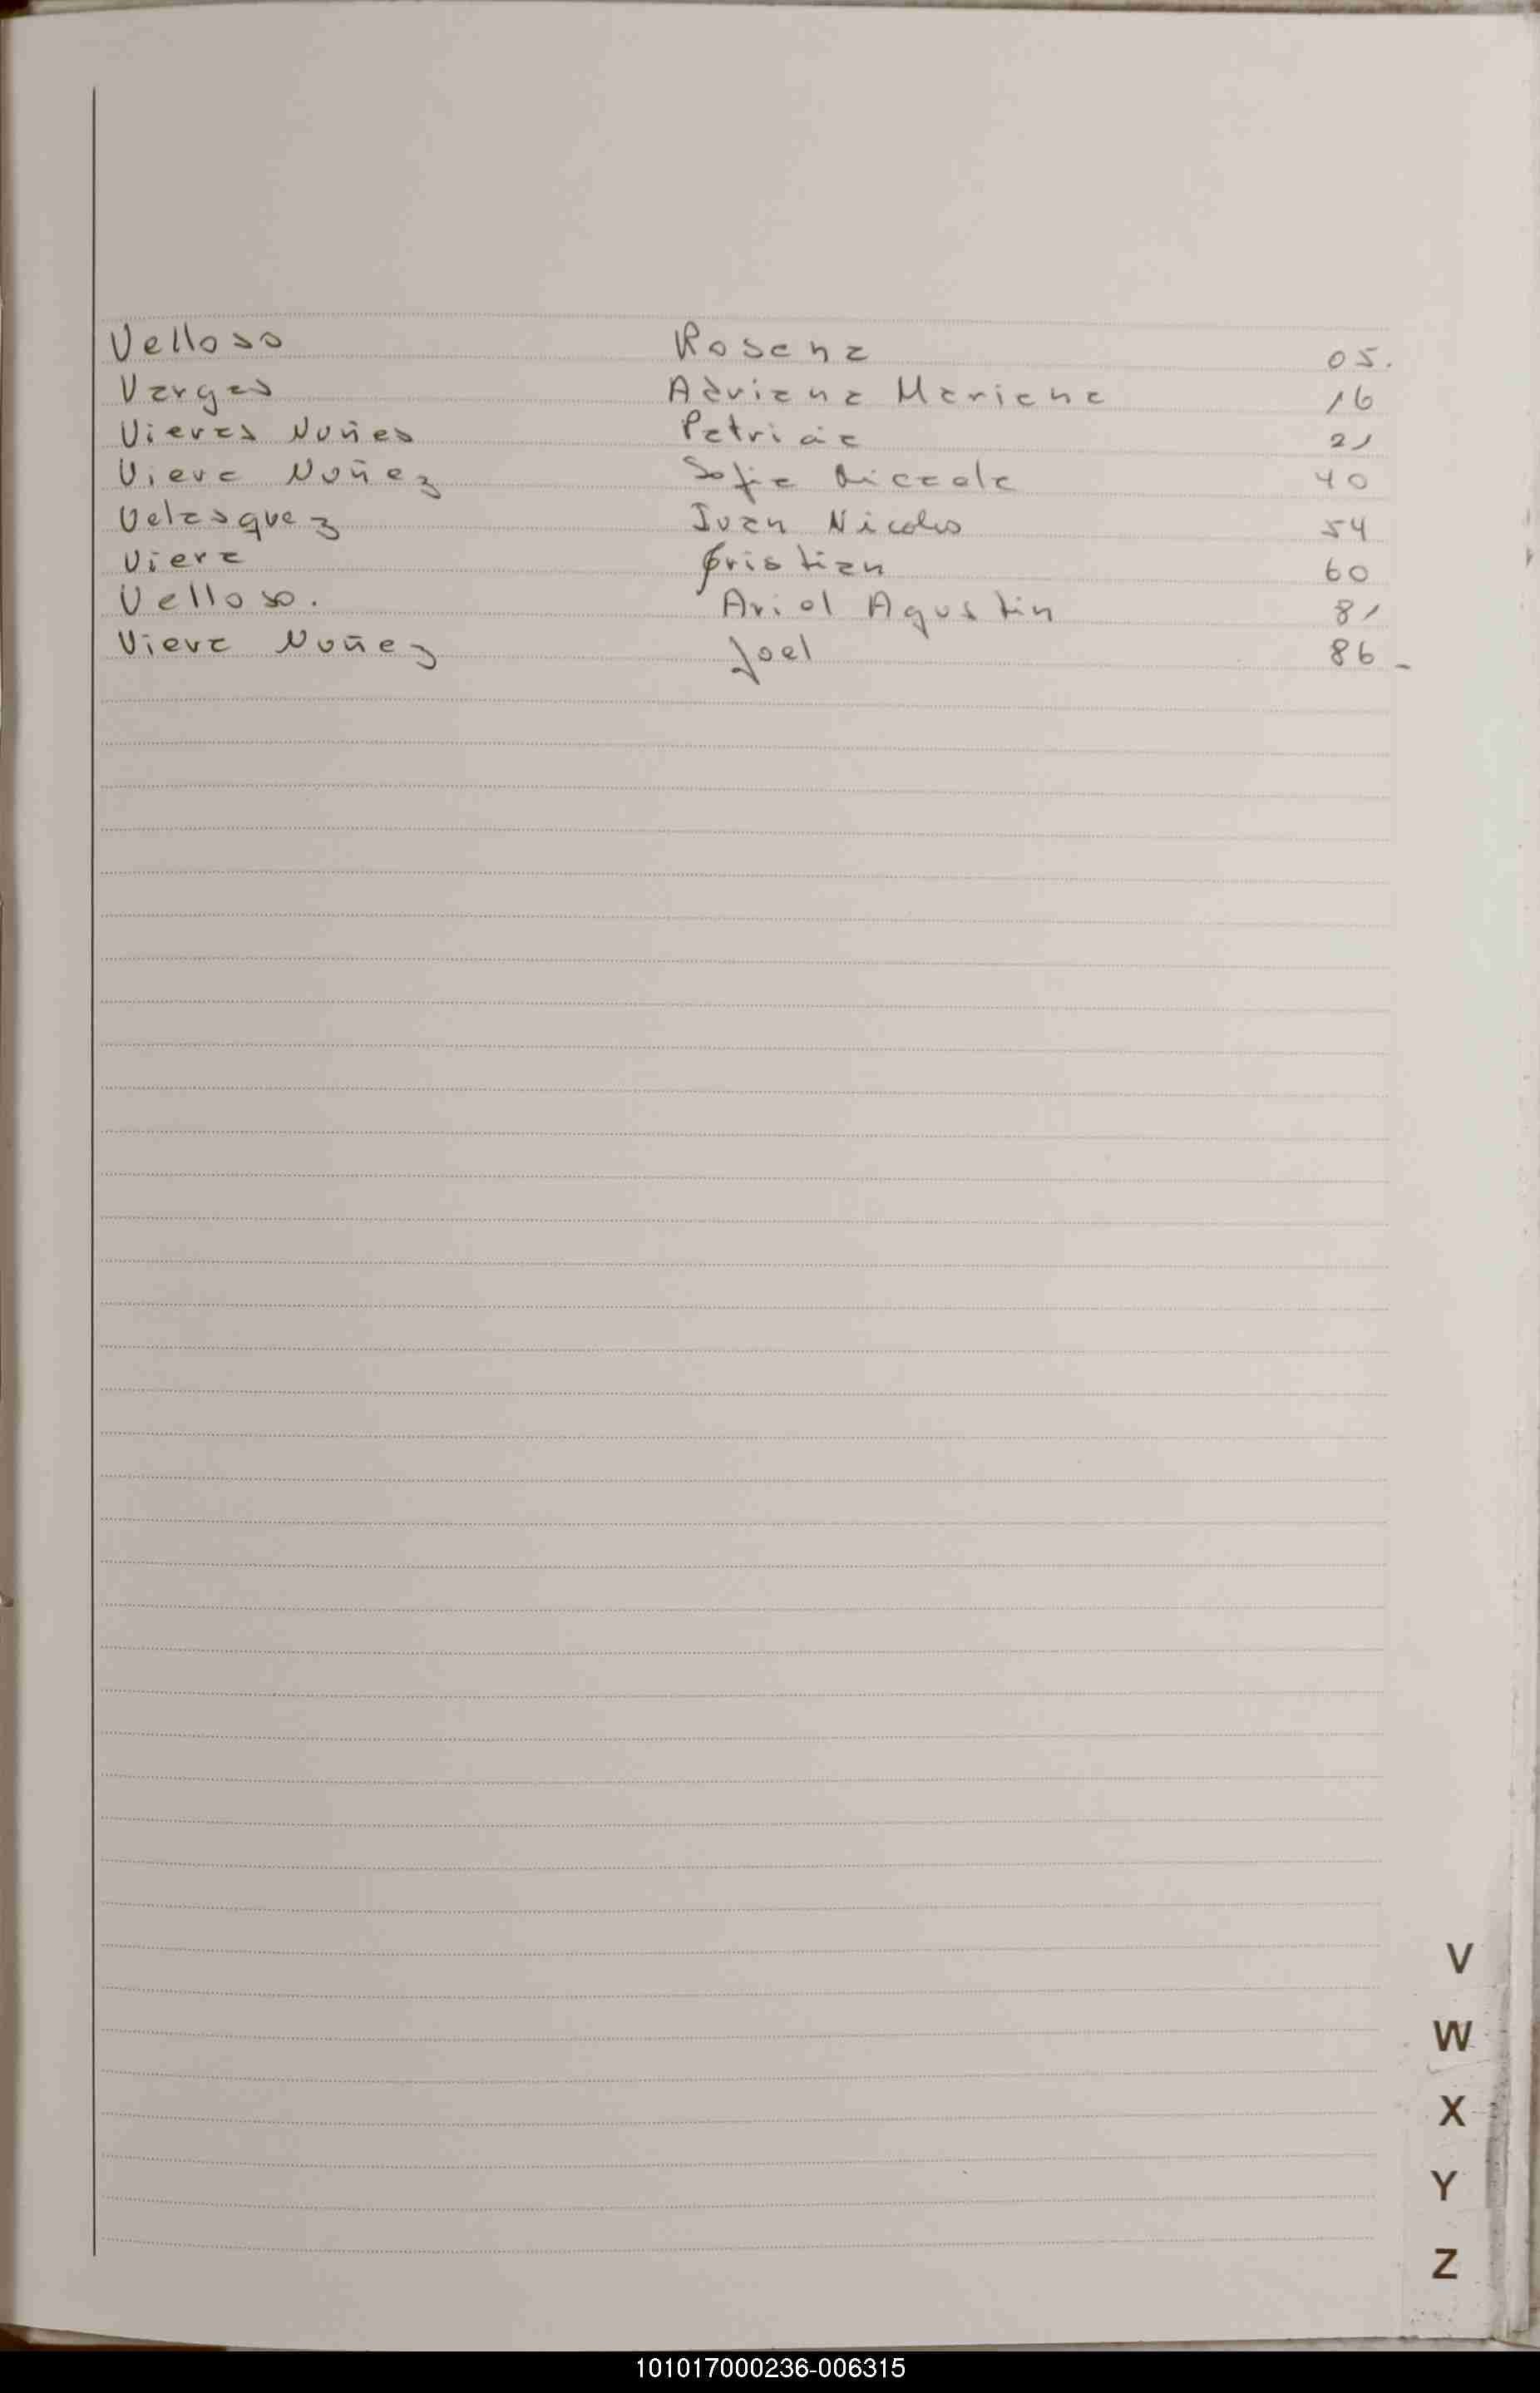 Velloso Rosana 05.
Vargas Adriana Mariana 16
Vieras Nuñes Patricia 21
Viera Nuñez Sofia 40
Velasquez Juan Nicolas 54
Viera Cristian 60
Velloso. Ariel Agustin 81
Viera Nuñez Joel 86 -
V
W
X
Y
Z
101017000236-006315